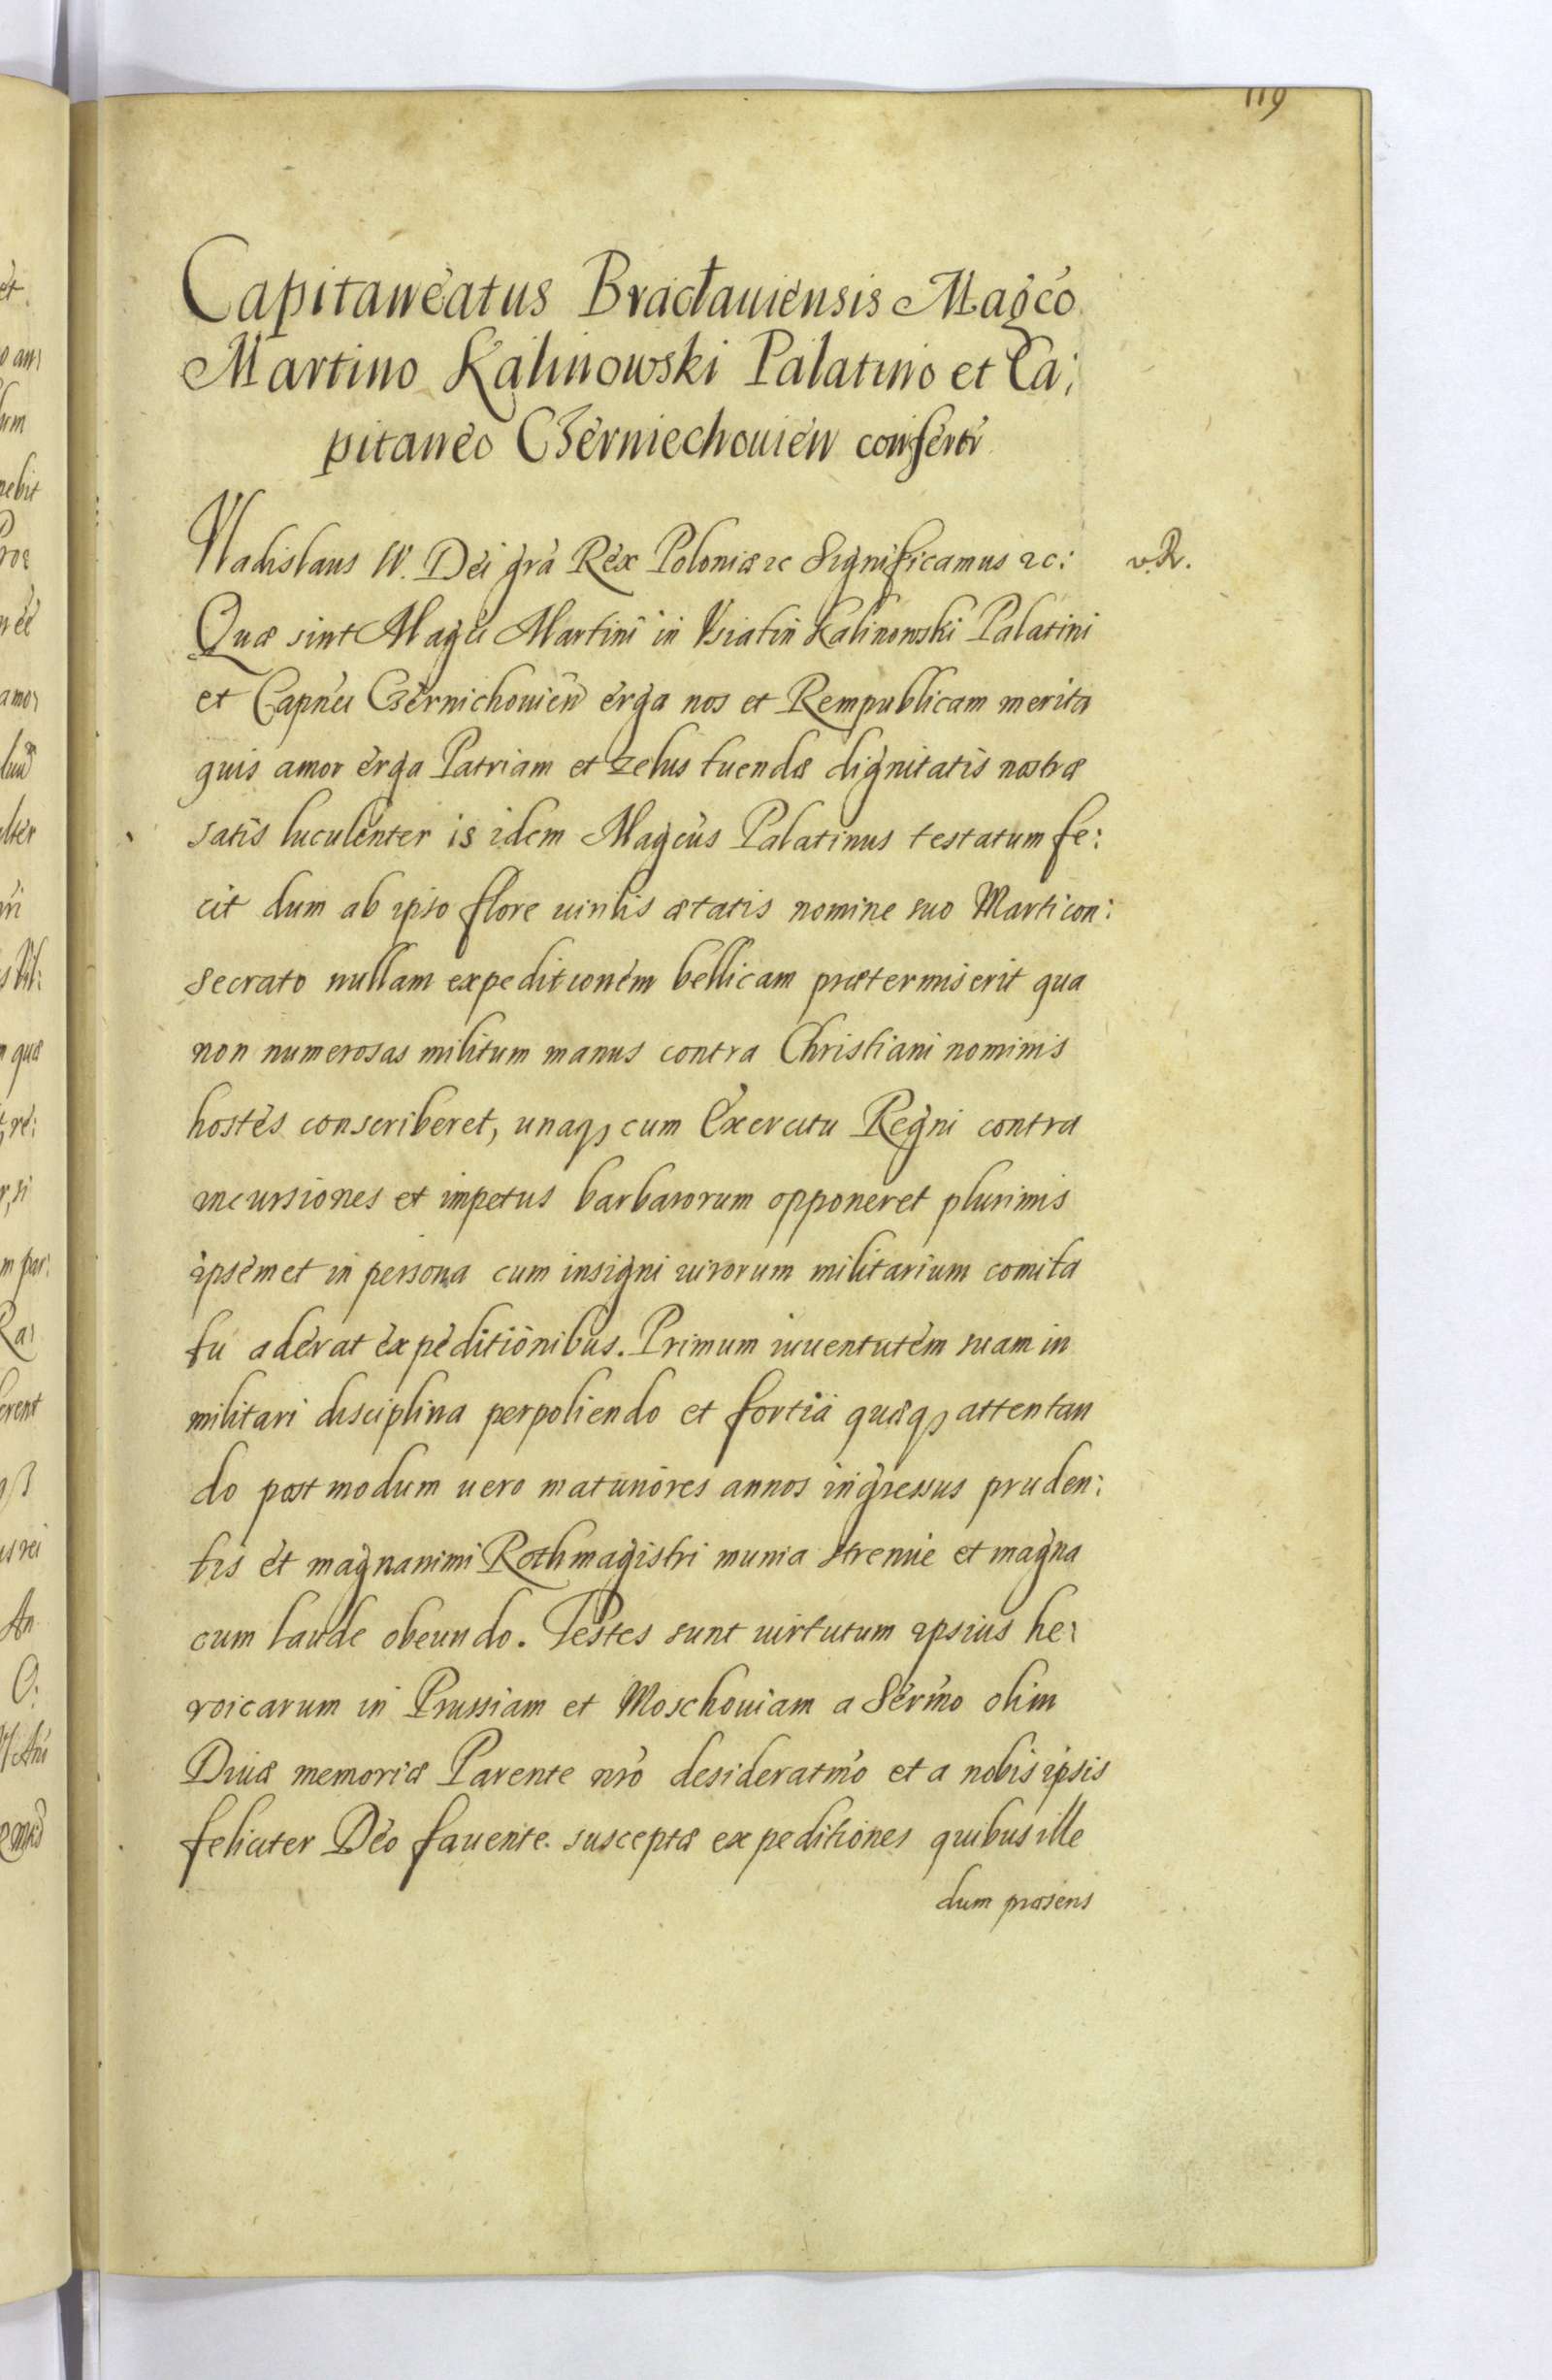 119
Capitaneatus Bracłauiensis Magco
Martino Kalinowski Palatino et Ca:
pitaneo Czerniechouien confertr
Vladislaus IV. Dei gra Rex Poloniæ &c Significamus &c: v.R.
Quæ sint Magci Martini in Vsiatin Kalinowski Palatini
et Capnei Czernichouien erga nos et Rempublicam merita
quis amor erga Patriam et zelus tuendæ dignitatis nostræ
satis luculenter is idem Magcus Palatinus testatum fe:
cit dum ab ipso flore uirilis ætatis nomine suo Marti con:
secrato nullam expeditionem bellicam prætermiserit qua
non numerosas militum manus contra Christiani nominis
hostes conscriberet, unaq, cum Exercitu Regni contra
incursiones et impetus barbarorum opponeret plurimis
ipsemet in persona cum insigni uirorum militarium comita
tu aderat expeditionibus. Primum iuuentutem suam in
militari disciplina perpoliendo et fortia quæq, attentan
do post modum uero maturiores annos ingressus pruden:
tis et magnanimi Rothmagistri munia strenue et magna
cum laude obeundo. Testes sunt uirtutum ipsius he:
roicarum in Prussiam et Moschouiam a Sermo olim
Diuæ memoriæ Parente nro desideratmo et a nobis ipsis
feliciter Deo fauente susceptæ expeditiones quibus ille
dum præsens